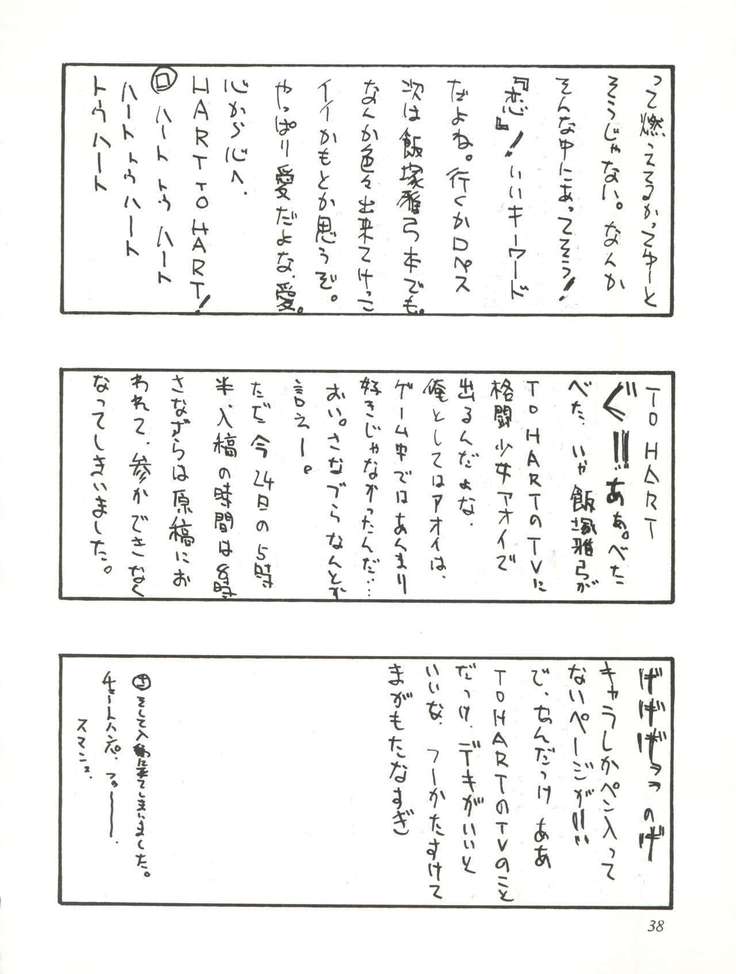 って燃えてるかってゆーと
そうじゃない。なんか
そんな中にあってそう!
『恋』! いいキーワード
だよね。行くかロペス
次は飯塚雅弓本でも。
なんか色々出来てけっこ
イイかもとか思うぞ。
やっぱり愛だよな、愛。
心から心へ、
HART TO HART!
ハート トゥ ハート
ハート トゥ ハート
トゥ ハート
TO HART
ぐ!!ああ。べた
べた、いや飯塚雅弓が
TO HARTのTVに
格闘少女アオイで
出るんだよな、
俺としてはアオイは、
ゲーム中ではあんまり
好きじゃなかったんだ…
おい。さなづらなんとか
言えー。
ただ今24日の5時
半、入稿の時間は8時
さなづらは原稿にお
われて、参かできなく
なってしまいました。
げげげっっ のげ
キャラしかペン入って
ないページが!!!
で、なんだっけ ああ
TO HARTのTVのこと
だっけ、デキがいいと
いいな、フーかたすけて
まがもたなすぎ
そして入稿に来てしまいました。
チョートハンパ、フゥーー、
スマンヌ、
38